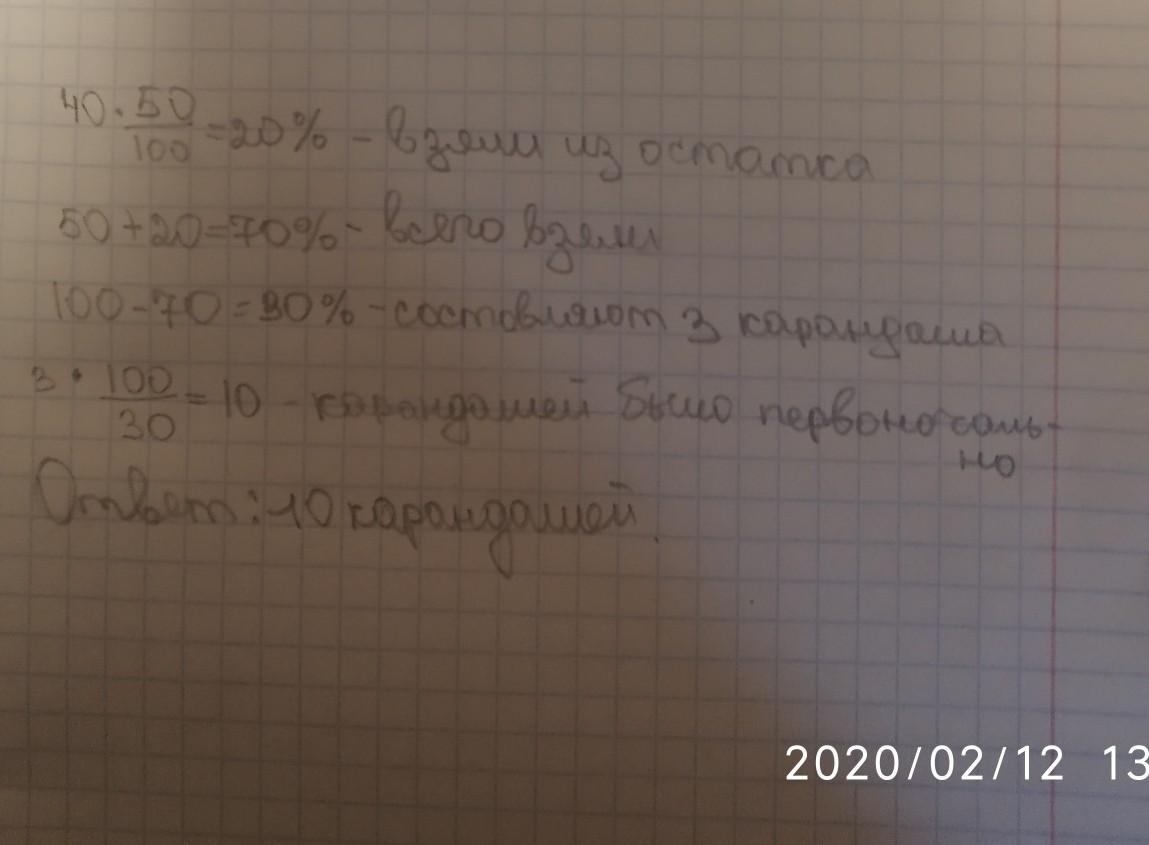 40 · 50/100 = 20% - взяли из остатка
50 + 20 = 70% - всего взяли
100 - 70 = 30% - составляют 3 карандаша
3 · 100/30 = 10 - карандашей было первоначаль-
но
Ответ: 10 карандашей.
2020/02/12 13